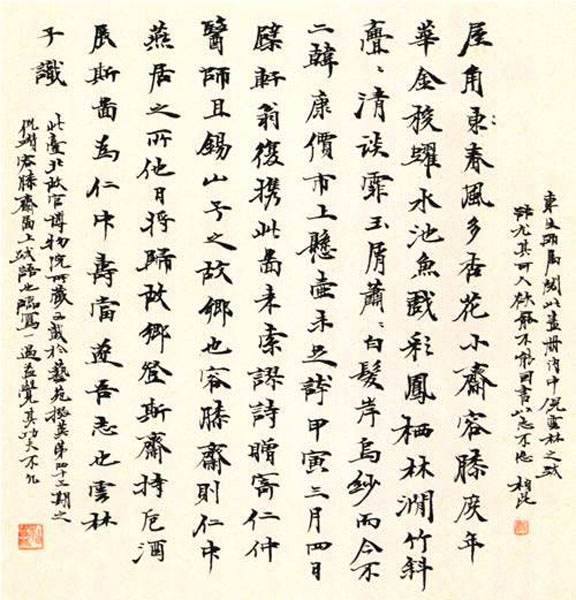 中倪雲林之跋
尤其可人欲罷不能因書以志不忘
屋角東春風多杏花小齋容膝度年
華金梭躍水池魚戲彩鳳栖林澗竹斜
亹〻清談霏玉屑蕭〻白髮岸烏紗而今不
二韓康價市上懸壺未足誇甲寅三月四日
檗軒翁復携此啚来索謬詩贈寄仁仲
醫師且錫山予之故鄉也容膝齋則仁仲
燕居之所他日將歸故鄉登斯齋持卮酒
展斯啚為仁仲壽當遂吾志也雲林
子識
此臺北故宫博物院所藏又載於藝苑掇英第四十三期之
倪瓚容膝齋啚上跋語也臨寫一過益覺其功夫不凡